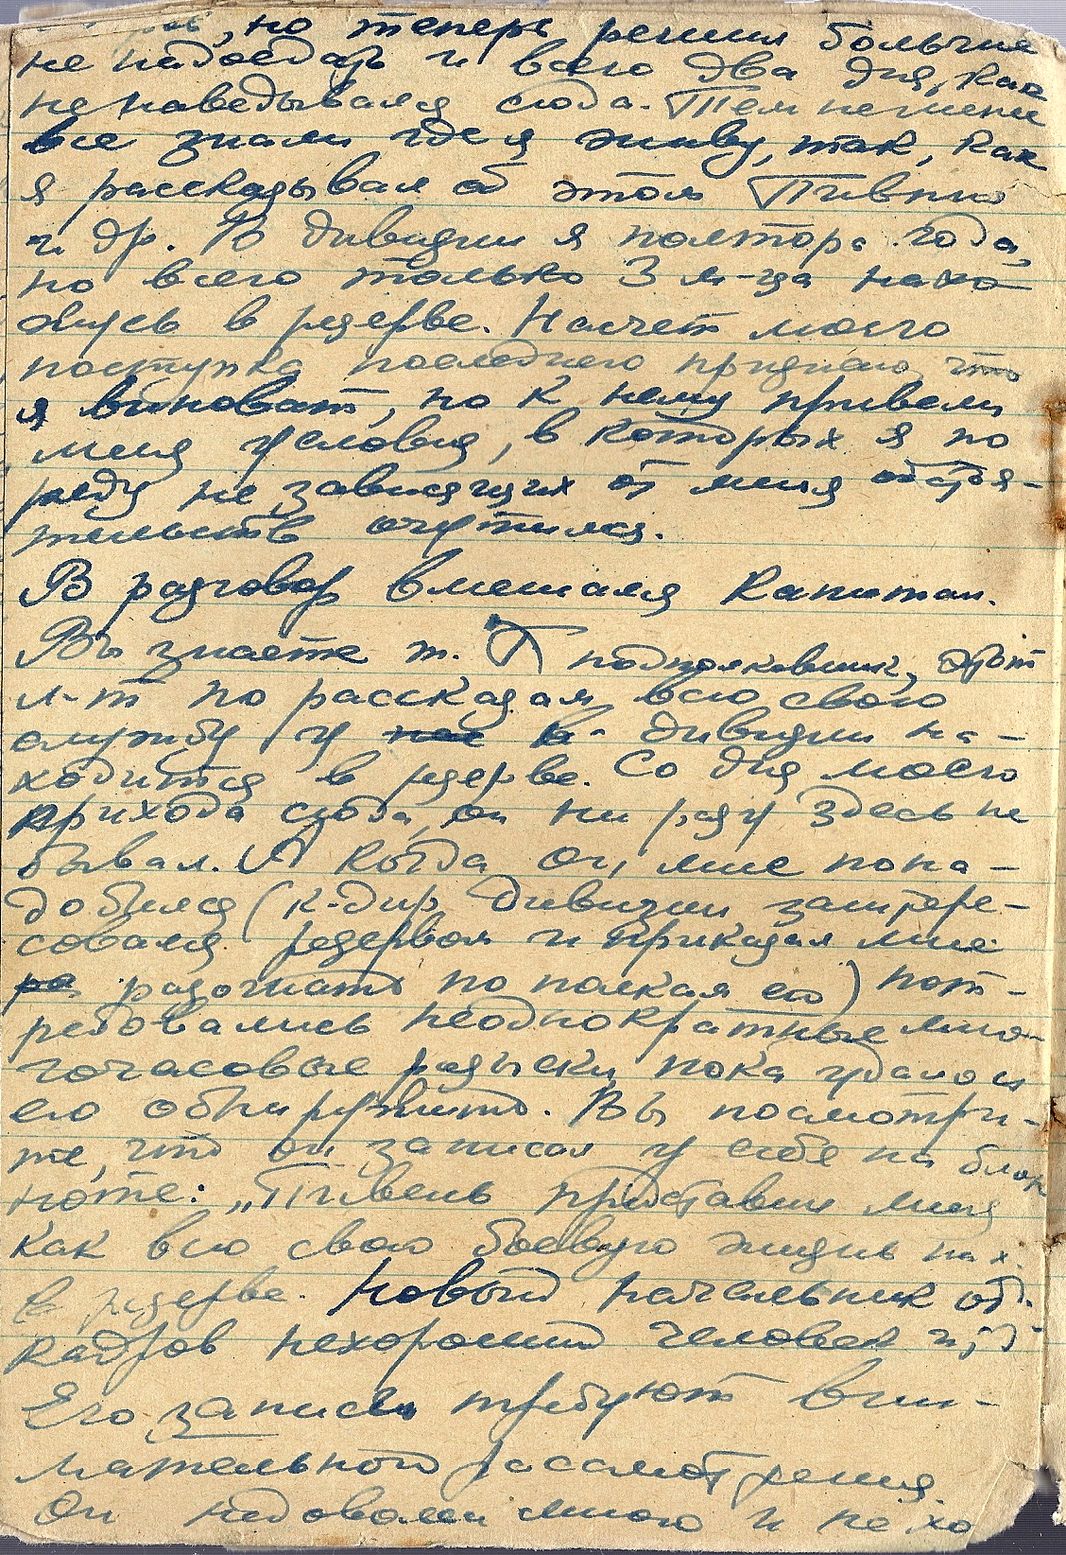 но теперь решил больше
не надоедать и всего два дня, как
не наведывался сюда. Тем не мене
все знали где я живу, так, как
я рассказывал об этом Пивню
и др. В дивизии я полтора года,
но всего только 3 м-ца нахо
жусь в резерве. Насчет моего
поступка последнего признаю, что
я виноват, но к нему привели
меня условия, в которых я по
ряду не зависящих от меня обстоя-
тельств очутился.
В разговор вмешался капитан.
Вы знаете т. П подполковник, этот
л-т по рассказам всю свою
службу у нас в дивизии на-
ходится в резерве. Со дня моего
прихода сюда, он ни разу здесь не
бывал. А когда он, мне пона-
добился (к-дир дивизии заинтере-
совался резервом и приказал мне
ра разогнать по полкам его) пот-
ребовались неоднократные мно-
гочасовые розыски пока удалось
его обнаружить. Вы посмотри-
те, что он записал у себя на блок
ноте: „Пивень представил меня
как всю свою боевую жизнь нах.
в резерве. Новый начальник отд.
кадров нехороший человек и,
Его записи требуют вни-
мательного рассмотрения.
Он недоволен мною и не хо